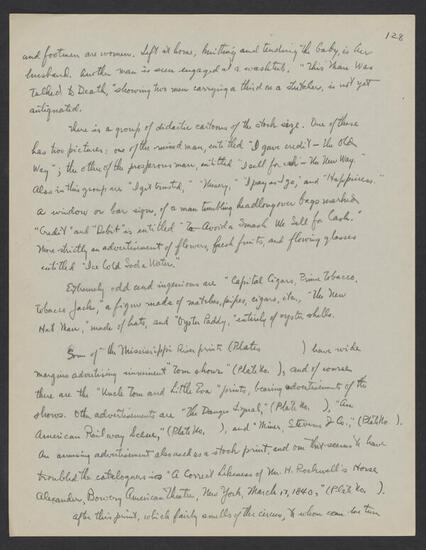 128
and footmen are women. Left at home, knitting and tending the baby, is her
husband. Another man is seen engaged at a washtub. "This Man Was
Talked to Death," showing two men carrying a third on a stretcher, is not yet
antiquated.
There is a group of didactic cartoons of the stock size. One of these
has two pictures: one of the ruined man, entitled "I gave credit – the Old
Way"; the other of the prosperous man, entitled "I sell for cash – the New Way."
Also in this group are "I got trusted," "Misery," "I pay as I go," and "Happiness."
A window or bar sign, of a man tumbling headlong over bags marked
"Credit" and "Debit" is entitled "To Avoid a Smash We Sell for Cash."
More strictly an advertisement of flowers, fresh fruits, and flowing glasses
entitled "Ice Cold Soda Water."
Extremely odd and ingenious are "Capital Cigars, Prime Tobacco,
Tobacco Jack," a figure made of matches, pipes, cigars, etc., "The New
Hat Man," made of hats, and "Oyster Paddy," entirely of oyster shells.
Some of the Mississippi River prints (Plates ) have wide
margins advertising "Tom shows" (Plate No. ), and of course
there are the "Uncle Tom and Little Eva" prints, bearing advertisements of the
shows. Other advertisements are "The Danger Signal," (Plate No. ), "An
American Railway Scene," (Plate No. ), and "Miser, Stevens & Co.," (Plate No. ).
An amusing advertisement also used as a stock print, and one that seems to have
troubled the cataloguers is "A Correct Likeness of Mr. H. Rockwell's Horse
Alexander, Bowery American Theatre, New York, March 17, 1840," (Plate No. ).
After this print, which fairly smells of the circus, to whom can we turn